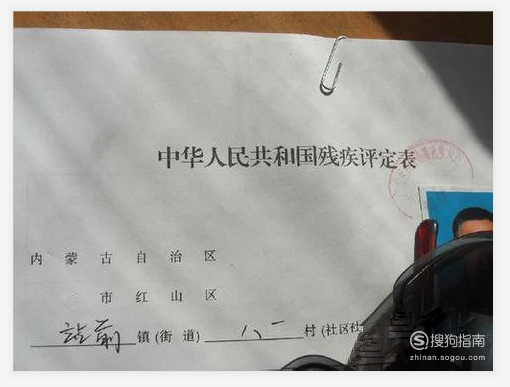 中华人民共和国残疾评定表
内蒙古自治区
市红山区
站前镇(街道)八一村(社区社
搜狗指南
zhinan.sogou.com